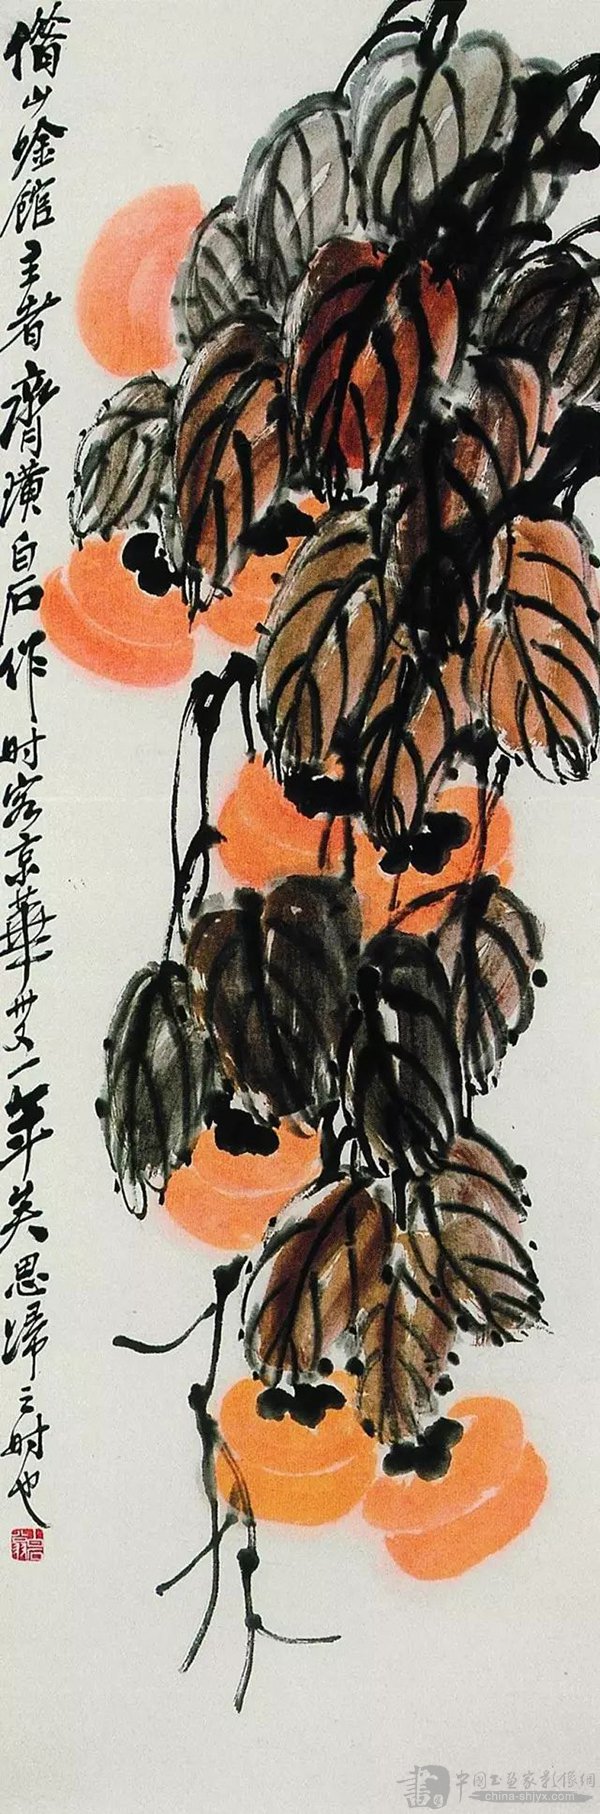 借山唫館主者齊璜白石作时客京華廿又一年矣思歸之时也
中国书画家影像網
china-shjyx.com